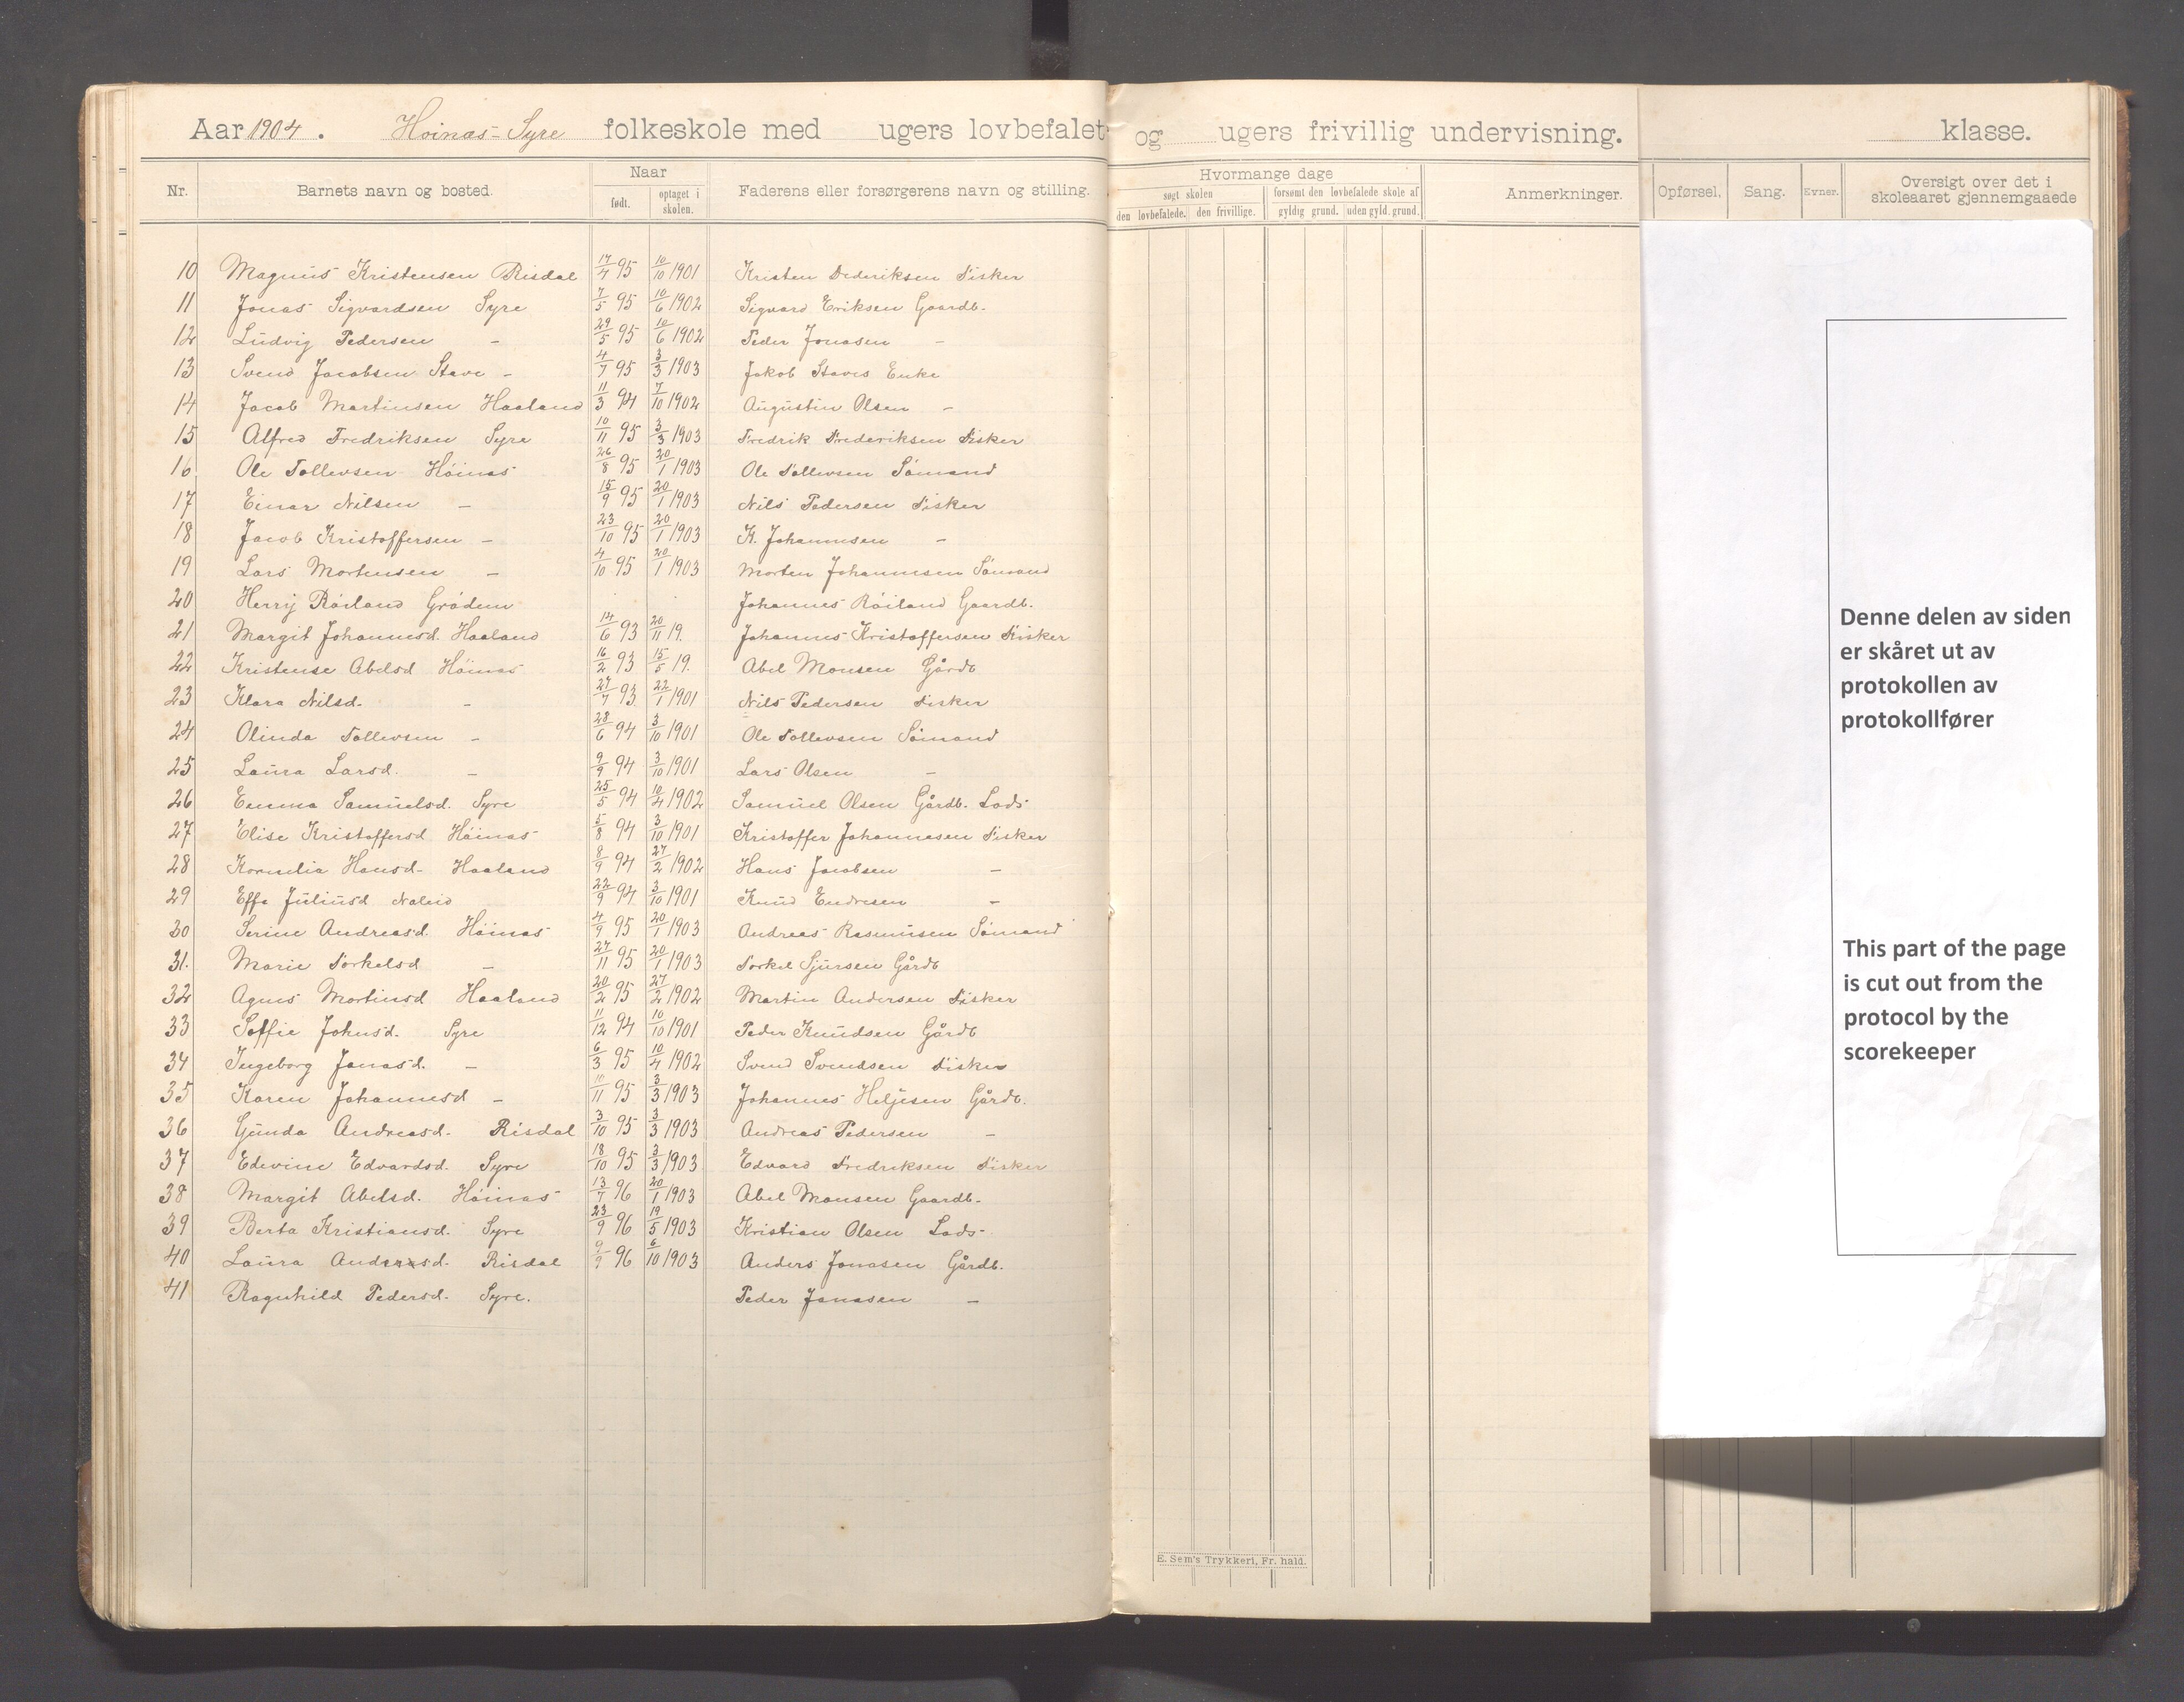 Aar 1904. Høinæs-Syre folkeskole med ugers lovbefalet og ugers frivillig undervisning. klasse.
Nr. Barnets navn og bosted. Naar født. optaget i skolen. Faderens eller forsørgerens navn og stilling. Hvormange dage søgt skolen den lovbefalede. den frivillige. forsømt den lovbefalede skole af gyldig grund. uden gyld. grund. Anmerkninger. Opførsel. Sang. Evner. Oversigt over det i skoleaaret gjennemgaaede
10 Magnus Kristensen Risdal 17/4 95 10/10 1901 Kristen Dideriksen Fisker
11 Jonas Sigvardsen Syre 7/5 95 10/6 1902 Sigvard Eriksen Gaardb.
12 Ludvig Pedersen - 29/5 95 10/6 1902 Peder Jonasen -
13 Svend Jacobsen Stave - 4/7 95 3/3 1903 Jakob Staves Enke
14 Jacob Martinsen Haaland 11/3 94 7/10 1902 Augustin Olsen -
15 Alfred Fredriksen Syre 10/11 95 3/3 1903 Fredrik Frederiksen Fisker
16 Ole Tollevsen Høinæs 26/8 95 20/1 1903 Ole Tollevsen Sømand
17 Einar Nilsen - 15/9 95 20/1 1903 Nils Pedersen Fisker
18 Jacob Kristoffersen - 23/10 95 20/1 1903 K. Johannesen -
19 Lars Mortensen - 4/10 95 20/1 1903 Morten Johannesen Sømand
20 Herrij Røiland Grødem Johannes Røiland Gaardb.
21 Margit Johannesd. Haaland 14/6 93 20/11 19. Johannes Kristoffersen Fisker
22 Kristense Abelsd Høinæs 16/2 93 15/5 19. Abel Monsen Gårdb
23 Klara Nilsd. - 27/7 93 22/1 1901 Nils Pedersen Fisker
24 Olinda Tollevsen - 28/6 94 3/10 1901 Ole Tollevsen Sømand
25 Laura Larsd. - 9/9 94 3/10 1901 Lars Olsen -
26 Emma Samuelsd. Syre 25/5 94 10/4 1902 Samuel Olsen Gårdb. Lods
27 Elise Kristoffersd Høinæs 5/8 94 3/10 1901 Kristoffer Johannesen Fisker
28 Kornelia Hansd. Haaland 8/9 94 27/2 1902 Hans Jacobsen -
29 Effe Juliusd 22/9 94 3/10 1901 Knud Endresen -
30 Serine Andreasd. Høinæs 4/9 95 20/1 1903 Andreas Rasmusen Sømand
31. Marie Torkelsd - 27/11 95 20/1 1903 Torkel Sjursen Gårdb
32 Agnes Martinsd Haaland 20/2 95 27/2 1902 Martin Andersen Fisker
33 Soffie Johnsd. Syre 11/12 94 10/10 1901 Peder Knudsen Gårdb
34 Ingeborg Jonasd. - 6/3 95 10/4 1902 Svend Svendsen Fisker
35 Karen Johannesd - 10/11 95 3/3 1903 Johannes Heljesen Gårdb.
36 Gunda Andreasd. Risdal 3/10 95 3/3 1903 Andreas Pedersen -
37 Edevine Edvardsd. Syre 18/10 95 3/3 1903 Edvard Fredriksen Fisker
38 Margit Abelsd. Høinæs 13/7 96 20/1 1903 Abel Monsen Gaardb.
39 Berta Kristiansd. Syre 23/9 96 19/5 1903 Kristian Olsen Lods
40 Laura Andersd. Risdal 9/9 96 6/10 1903 Anders Jonasen Gårdb.
41 Ragnhild Pedersd. Syre. Peder Jonasen -
E. Sem's Trykkeri, Fr. hald.
Denne delen av siden
er skåret ut av
protokollen av
protokollfører
This part of the page
is cut out from the
protocol by the
scorekeeper